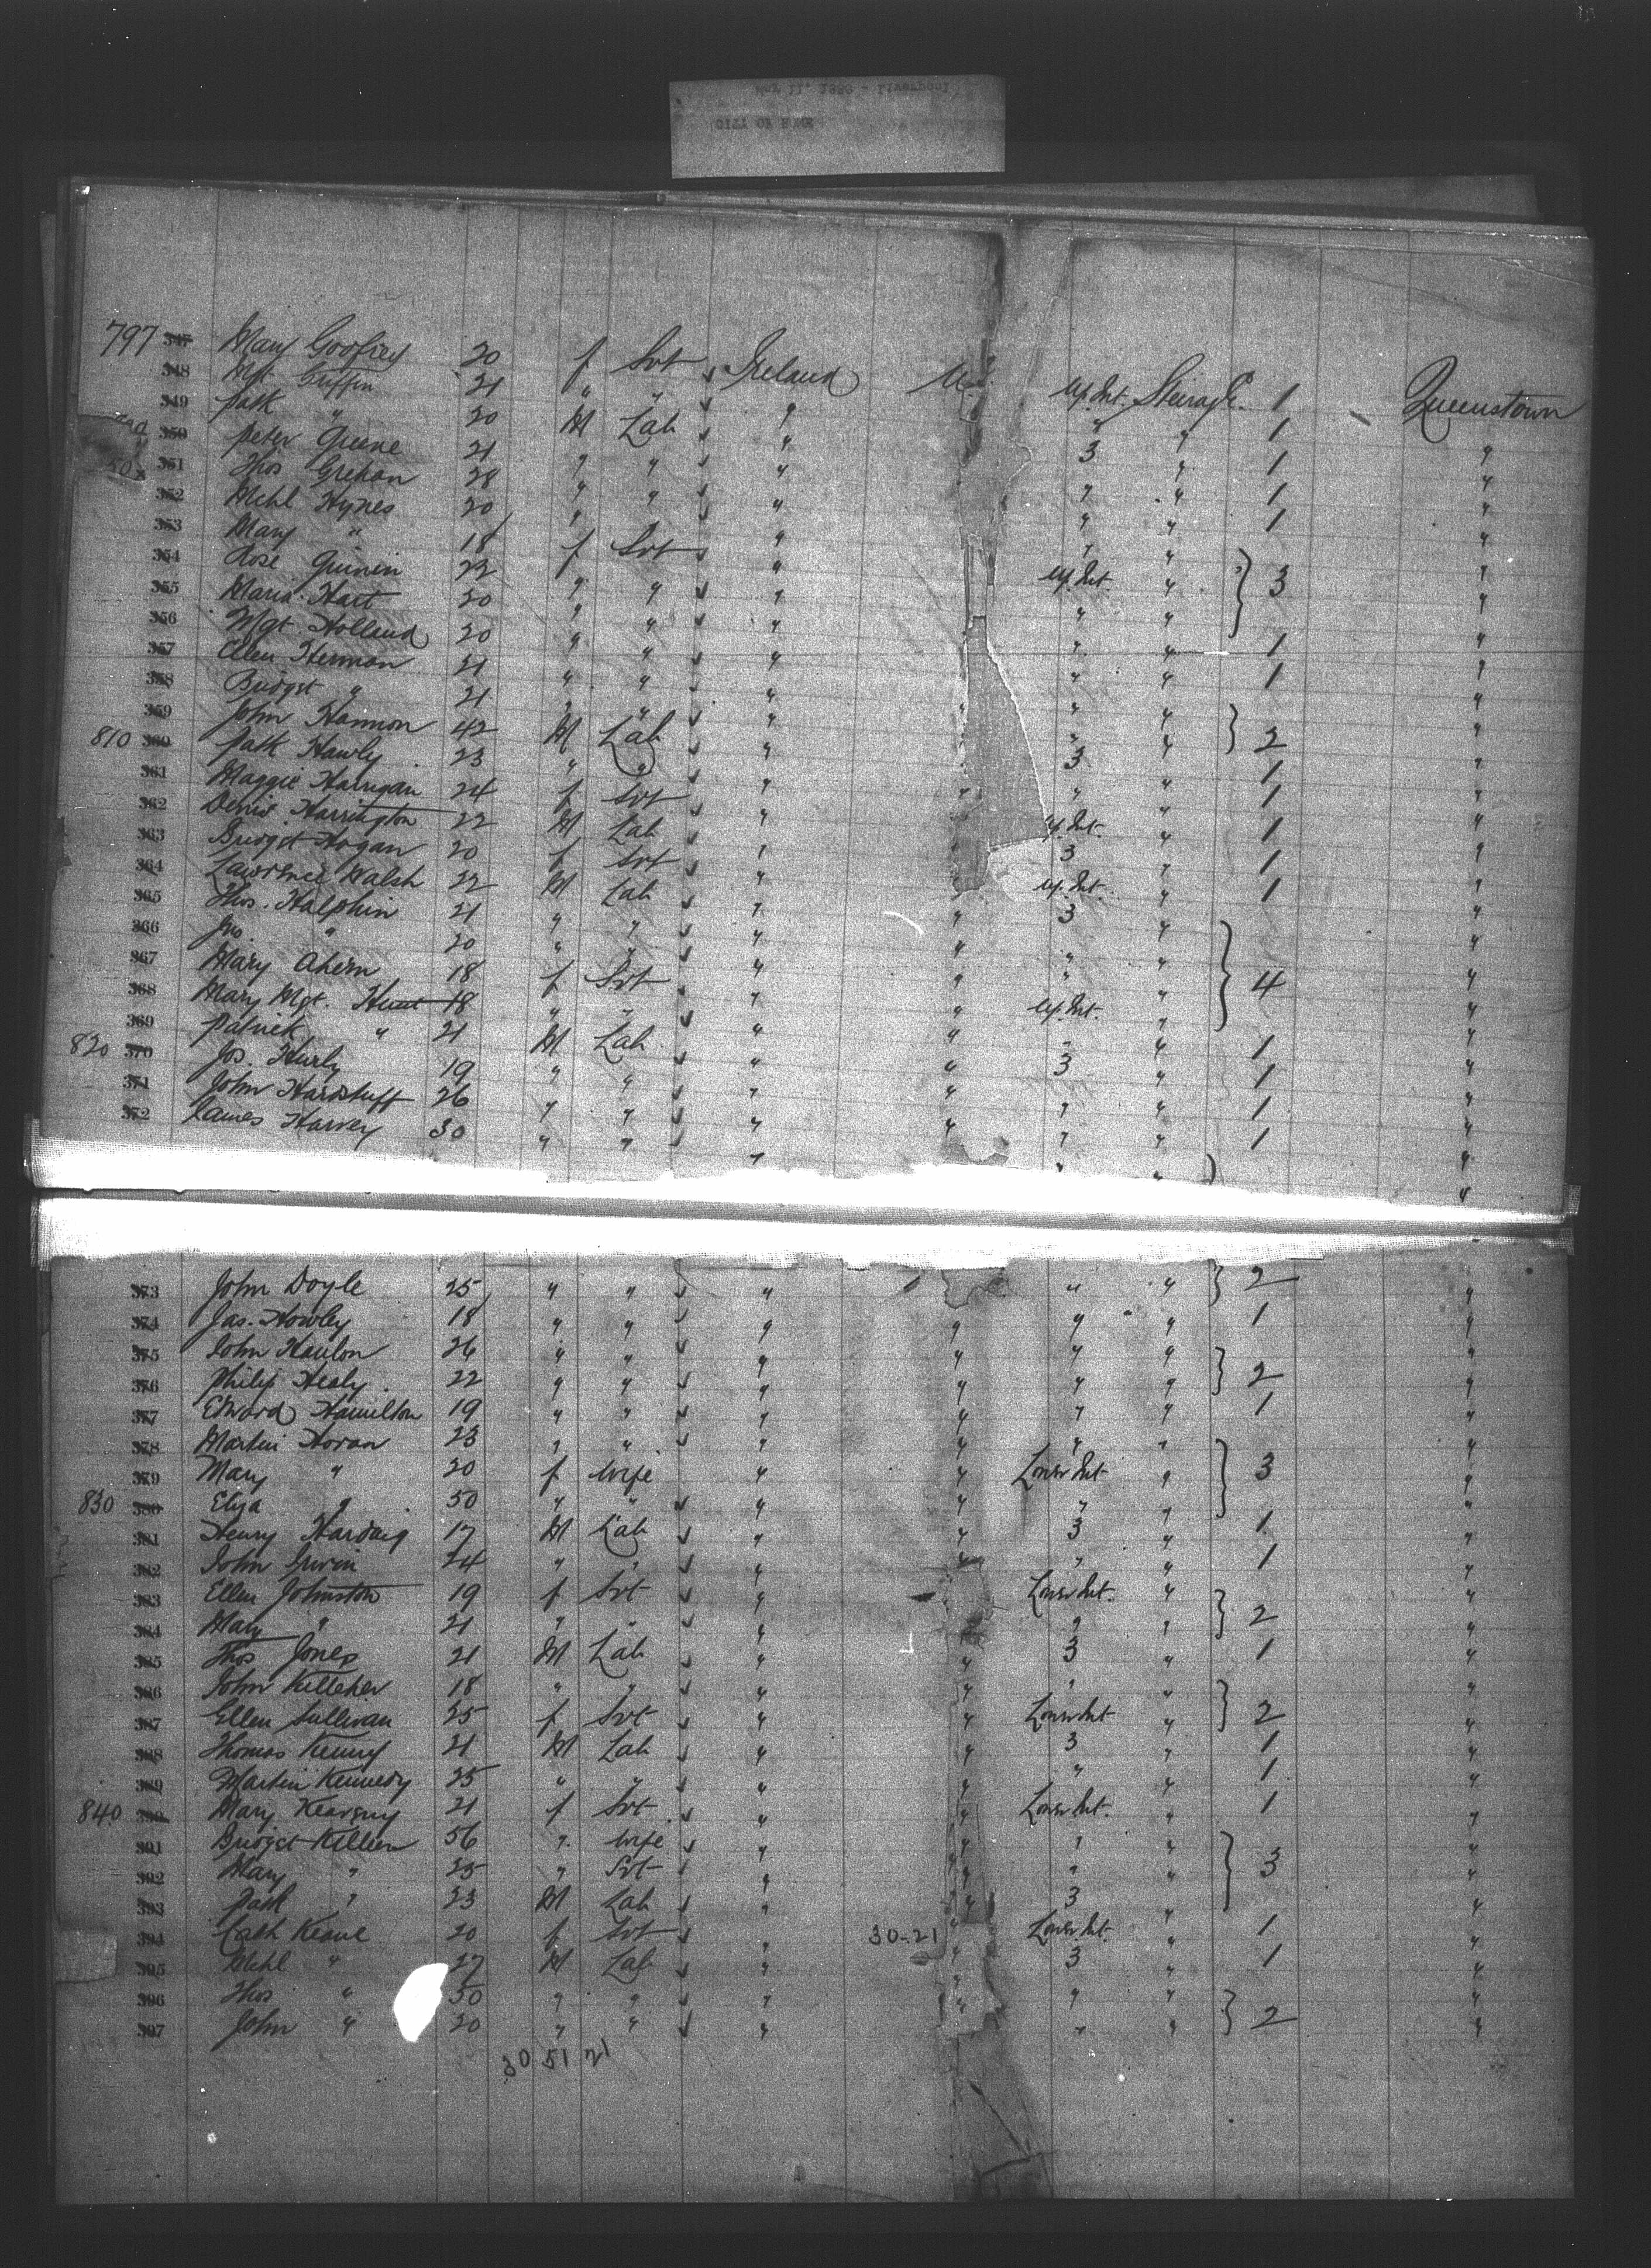 CITY OF ROME
797 347 Mary Godfrey 20 f Svt Ireland U.S. Up. Int. Steerage 1 Queenstown
348 Mgt Griffin 21 " " " " " 1 "
349 Patk " 20 M Lab " 3 " 1 "
350 Peter Greene 21 " " " " " 1 "
351 Thos Grehan 28 " " " " " 1 "
352 Mchl Hynes 20 " " " " "
353 Mary " 18 f Svt " Up. Int. " 3 "
354 Rose Quinin 23 " " " " " "
355 Maria Hart 20 " " " " " 1 "
356 Mgt Holland 20 " " " " " 1 "
357 Ellen Hermon 21 " " " " " "
358 Bridget " 21 " " " " " 2 "
359 John Hannon 42 M Lab " 3 " 1 "
810 360 Patk Hawly 23 " " " " " 1 "
361 Maggie Harrigan 24 f Svt " Up. Int. " 1 "
362 Denis Harrington 22 M Lab " 3 " 1 "
363 Bridget Hogan 20 f Svt " Up. Int. " 1 "
364 Lawrence Walsh 22 M Lab " " 3 " "
365 Thos. Halphin 21 " " " " " " "
366 Jno. " 20 " " " " " " 4 "
367 Mary Ahern 18 f Svt " " Up. Int. " "
368 Mary Mgt. Hunt 18 " " " " " " 1 "
369 Patrick " 21 M Lab " " 3 " 1 "
820 370 Jos. Hurly 19 " " " " " " 1 "
371 John Hardstuff 26 " " " " " " 1 "
372 James Harvey 30 " " " " " "
373 John Doyle 25 " " " " " 2 "
374 Jas. Howley 18 " " " " " " 1 "
375 John Hanlon 26 " " " " " " "
376 Philip Healy 22 " " " " " " 2 "
377 Edward Hamilton 19 " " " " " " 1 "
378 Martin Horan 23 " " " " " " "
379 Mary " 20 f wife " " Lower Int " 3 "
830 380 Eliza " 50 " " " " " " "
381 Henry Harding 17 M Lab " " 3 " 1 "
382 John Irwin 24 " " " " " " 1 "
383 Ellen Johnston 19 f Svt " Lower Int. " "
384 Mary " 21 " " " " " 2 "
385 Thos Jones 21 M Lab " " 3 " 1 "
386 John Kelleher 18 " " " " " " "
387 Ellen Sullivan 25 f Svt " " Lower Int " 2 "
388 Thomas Kenny 21 M Lab " " 3 " 1 "
389 Martin Kennedy 25 " " " " " " 1 "
840 390 Mary Kearny 21 f Svt " " Lower Int. " 1 "
391 Bridget Killen 56 " wife " " " " "
392 Mary " 25 " Svt " " " " 3 "
393 Patk " 23 M Lab " " 3 " "
394 Cath Keane 20 f Svt " 30-21 " Lower Int. " 1 "
395 Mchl " 27 M Lab " " 3 " 1 "
396 Thos " 50 " " " " " " "
397 John " 20 " " " " " 2 "
30 51 21